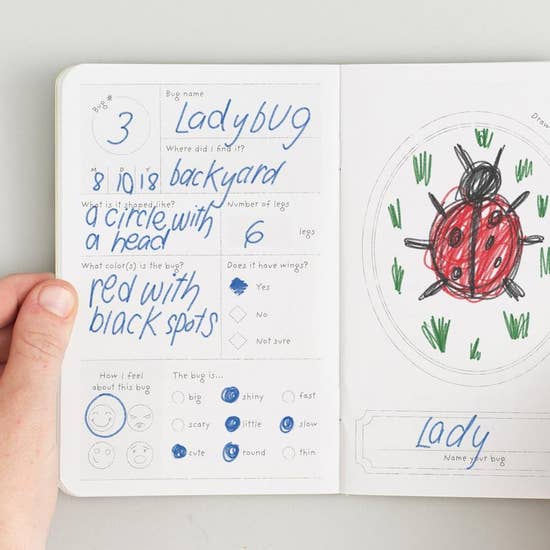 Bug #
3
Bug name
Ladybug
Where did i find it?
backyard
M D Y
8 10 18
What is it shaped like?
a circle with
a head
Number of legs
6 legs
What color(s) is the bug?
red with
black spots
Does it have wings?
Yes
No
Not sure
How I feel
about this bug
The bug is...
big shiny fast
scary little slow
cute round thin
Draw
Lady
Name your bug